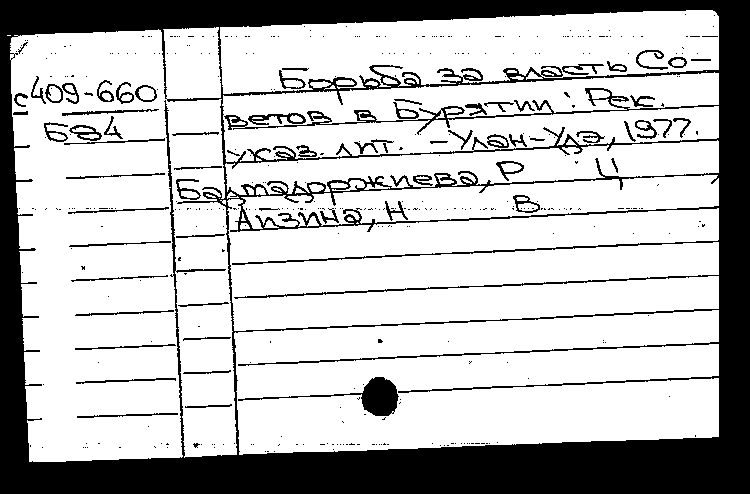 с409-660
Б84
Борьба за власть Со-
ветов в Бурятии : Рек.
указ. лит. – Улан-Удэ, 1977.
Балмадоржиева, Р Ц
Айзина, Н В